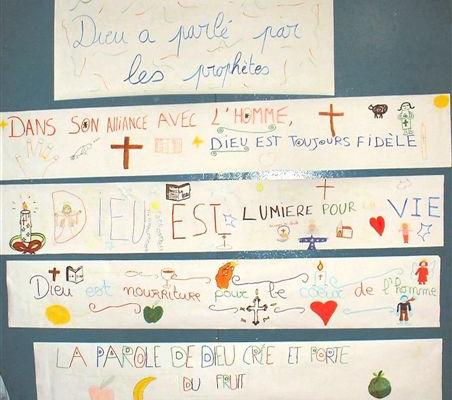 Dieu a parlé par
les prophètes
DANS SON ALLIANCE AVEC L'HOMME,
DIEU EST TOUJOURS FIDÈLE
DIEU EST LUMIERE POUR LA VIE
Dieu est nourriture pour le cœur de l'homme
LA PAROLE DE DIEU CRÉE ET PORTE
DU FRUIT